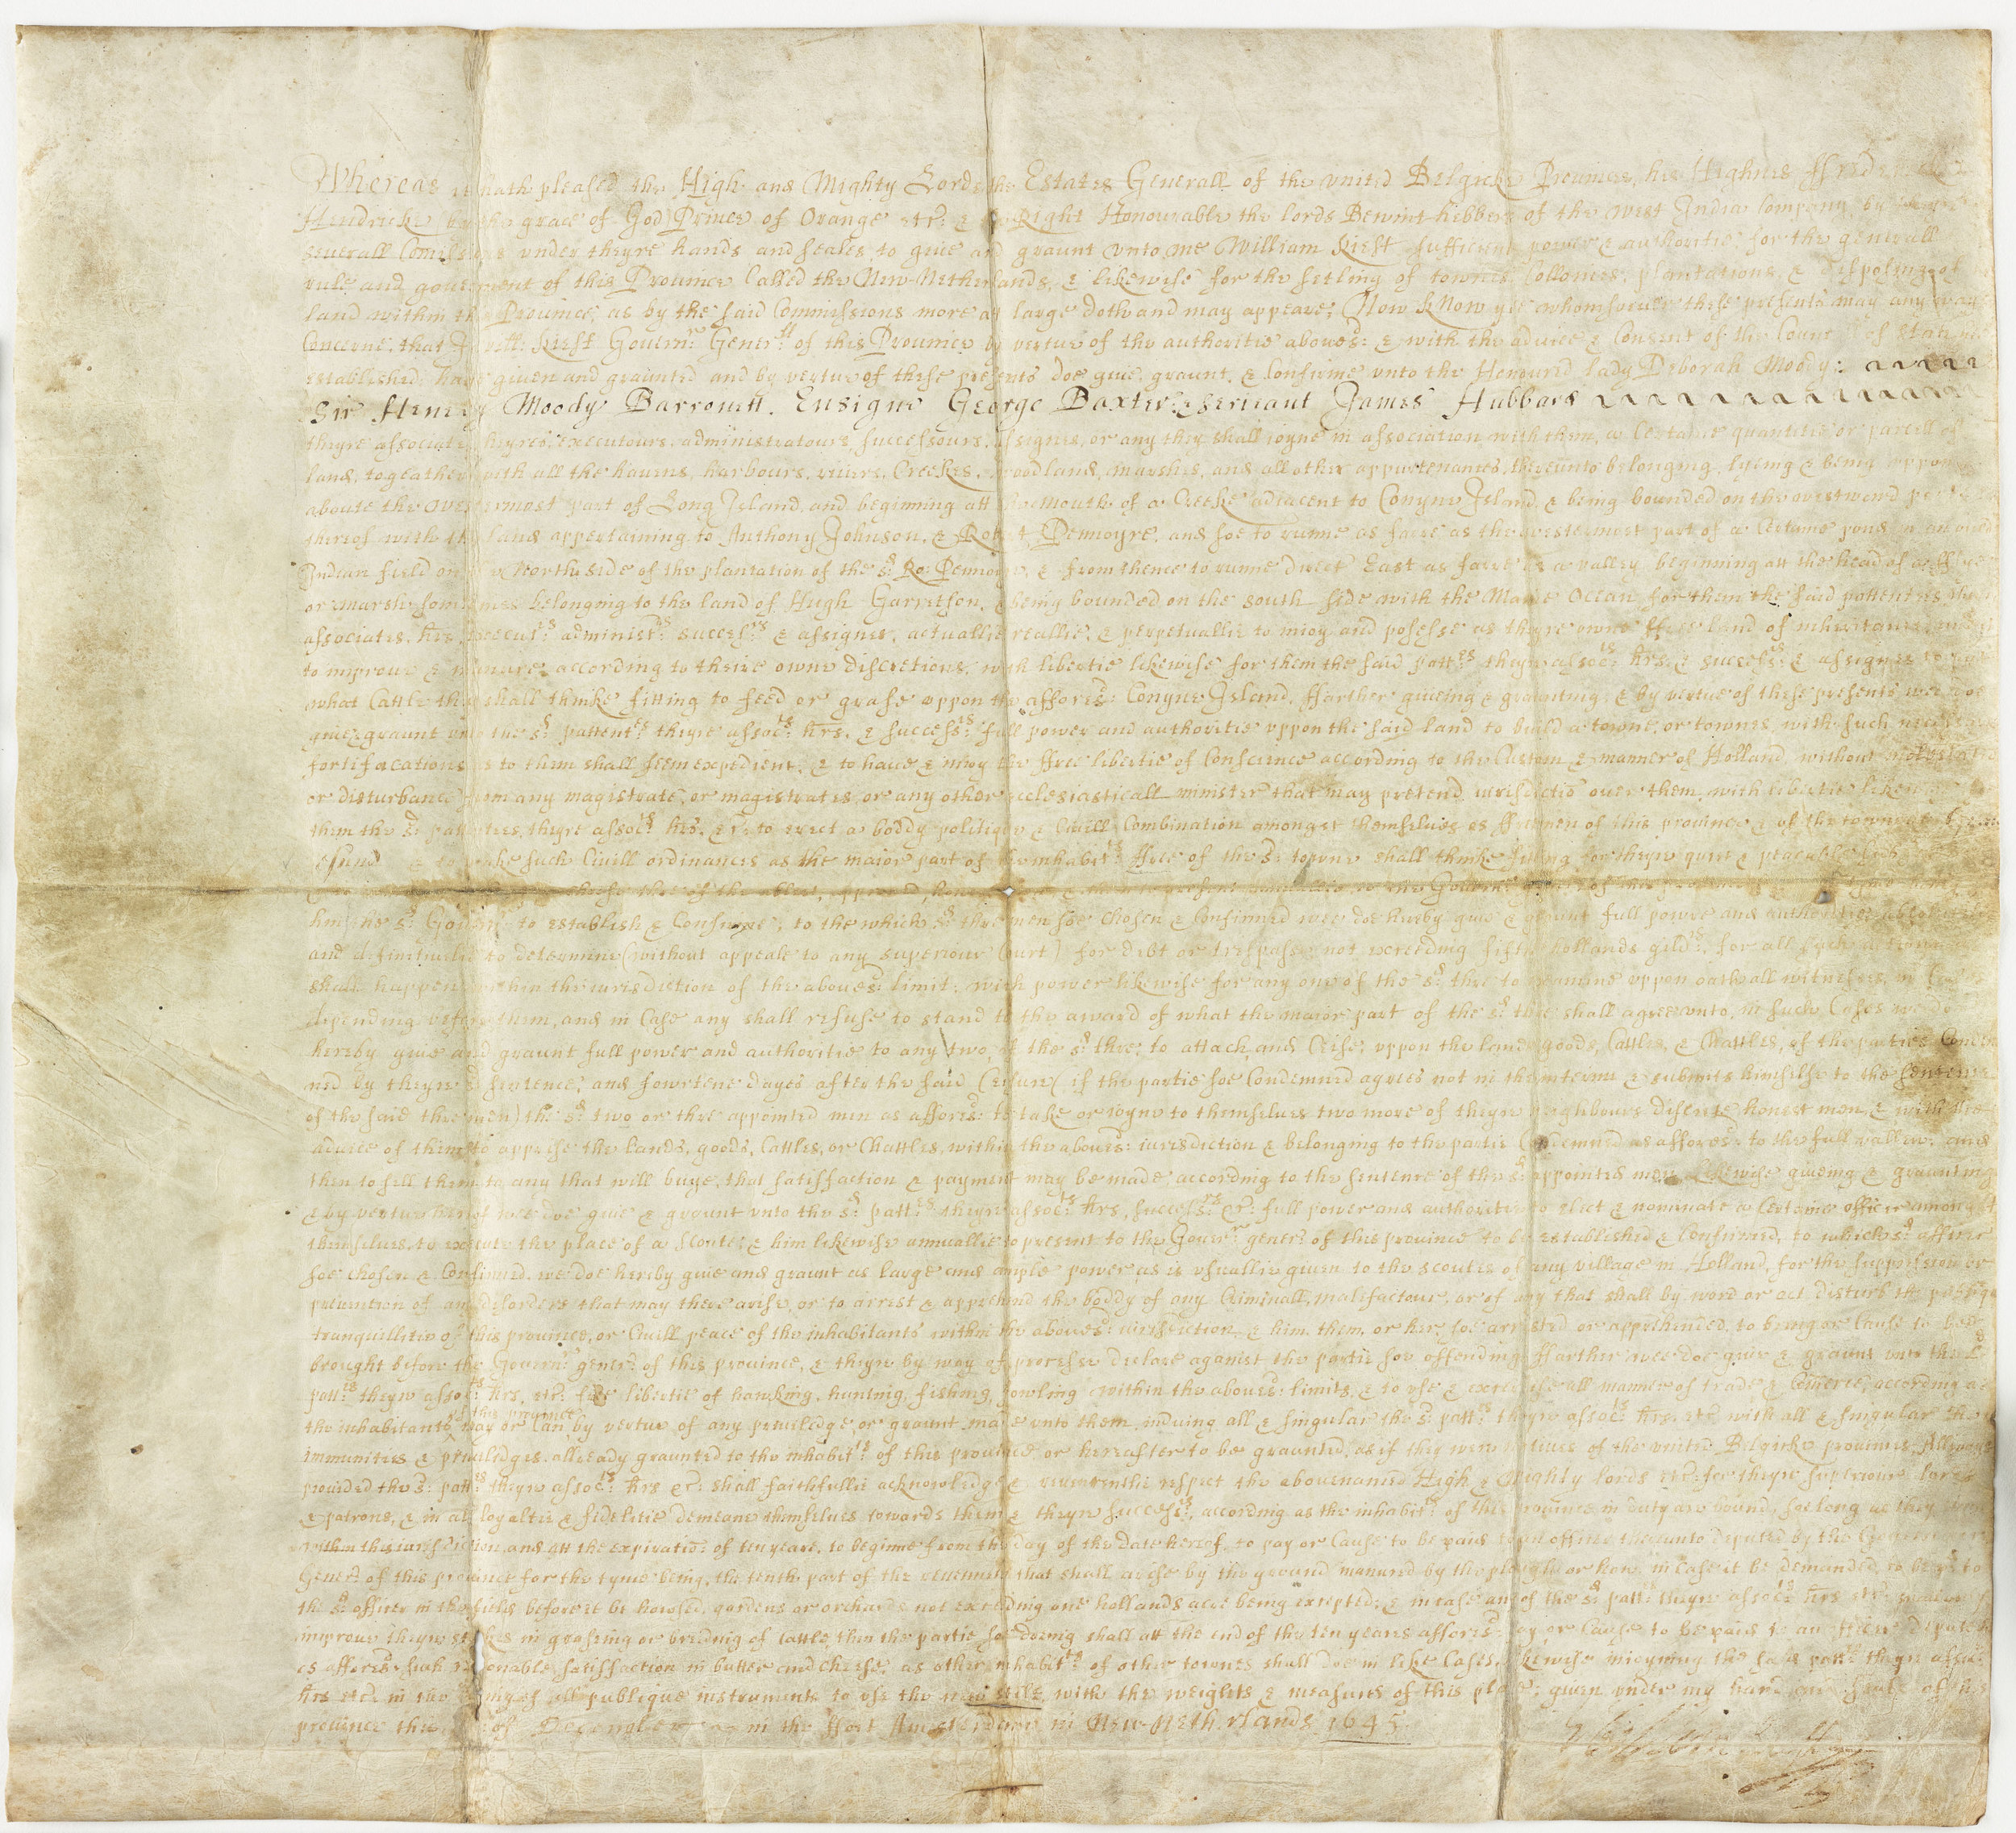 Whereas it hath pleased the High and Mighty Lords the Estates Generall of the united Belgicke Provinces, his Highnes ffredericke
Hendricke by the grace of God Prince of Orange etc: & the Right Honourable the lords Bewint hebbers of the west India Company by theyre
severall Comissions under theyre hands and seales to give and graunt unto me William Kieft sufficient power & authoritie for the generall
rule and government of this Province Called the New-Netherlands, & likewise for the setling of townes Collonies, plantations, & disposing of
land within this Province; as by the said Commissions more att large doth and may appeare; Now Know yee whomsoever these presents may any ways
Concerne, that I Will: Kieft Govern:r Gener:ll of this Province by vertue of the authoritie aboves:d & with the advice & Consent of the Councell of state
established, have given and graunted and by vertue of these presents doe give, graunt, & Confirme unto the Honoured lady Deborah Moody;
Sir Henery Moody Barronett, Ensigne George Baxter: & serieant James Hubbard
theyre associates heyres, executours, administratours, successours, assignes, or any they shall ioyne in association with them, a Certaine quantitie or parcell of
land, togeather with all the havens, harbours, rivers, Creekes, woodland, marshes, and all other appurtenances, thereunto belonging, lyeing & being uppon
aboute the westermost part of Long Island, and beginning att the mouth of a Creeke adiacent to Conyne Island, & being bounded on the westward part
thereof with the land appertaining to Anthony Johnson, & Robert Pennoyre, and soe to runne as farre as the westermost part of a Certaine pond in an ould
Indian field on the North side of the plantation of the s:d Ro: Pennoyre, & from thence to runne direct East as farre as a valley beginning att the head of a fflye
or marsh sometimes belonging to the land of Hugh Garritson, & being bounded on the south side with the Maine Ocean, for them the said pattentees, theyre
associates, hrs, execut:rs administ:rs success:rs & assignes, actuallie reallie, & perpetuallie to inioy and posesse as theyre owne ffree land of inheritance, and
to improve & manure according to theire owne discretions, with libertie likewise for them the said patt:es theyre assoc:ts hrs, & success:rs & assignes to
what Cattle they shall thinke fitting to feed or grase uppon the affores:d Conyne Island, ffarther giveing & graunting, & by vertue of these presents wee doe
give & graunt unto the s:d pattent:es theyre assoc:ts hrs, & success:rs full power and authoritie uppon the said land to build a towne, or townes with such necessarie
fortifications as to them shall seem expedient, & to have & inioy the ffree libertie of Conscience according to the Custom & manner of Holland, without molestation
or disturbance from any magistrate, or magistrates, or any other ecclesiasticall minister that may pretend iurisdictio over them, with libertie likewise for
them the s:d pattentees, theyre assoc:ts hrs, &c: to erect a boddy politique & Civill Combination amongst themselves as ffreemen of this province & of the towne of Graves
esend & to make such Civill ordinances as the maior part of the inhabit:ts ffree of the s:d towne shall thinke fitting for theyre quiet & peaceable
him the s:d Govern:r to establish & Confirme, to the which s:d three men soe chosen & Confirmed wee doe hereby give & graunt full power and authoritie absolutely
and definitively to determine (without appeale to any superiour Court) for debt or trespass not exceeding fiftie hollands gild:rs, for all such actions as
shall happen within the iurisdiction of the aboves:d limit: with power likewise for any one of the s:d three to examine uppon oath all witnesses in Cases
depending before them, and in Case any shall refuse to stand to the award of what the maior part of the s:d three shall agree unto, in such Cases we do
hereby give and graunt full power and authoritie to any two of the s:d three, to attach and Ceise, uppon the lands, goods, Cattles, & Chattles, of the parties Condem
ned by theyre s:d sentence, and fowrtene dayes after the said Ceisure (if the partie soe Condemned agrees not in the interim & submits himselfe to the sentence
of the said three men) the s:d two or three appointed men as affores:d to take or ioyne to themselves two more of theyre neighbours discrete, honest men, & with the
advice of them to apprise the lands, goods, Cattles, or Chattles, within the aboves:d iurisdiction & belonging to the partie Condemned as affores:d to the full vallew, and
then to sell them to any that will buye, that satisfaction & payment may be made according to the sentence of the s:d appointed men, Likewise giveing & graunting
& by vertue hereof wee doe give & graunt unto the s:d patt:es theyre assoc:ts hrs, success:rs &c: full power and authoritie to elect & nominate a Certaine officer amongst
themselves, to execute the place of a scoute, & him likewise annuallie to present to the Gover:r gener:ll of this province to be established & Confirmed, to which s:d officer
soe chosen & Confirmed, we doe hereby give and graunt as large and ample power as is usuallie given to the scoutes of any village in Holland, for the suppression or
prevention of any disorders that may there arise, or to arrest & apprehend the boddy of any Criminall, malefactour, or of any that shall by word or act disturb the publique
tranquillitie of this province, or Civill peace of the inhabitants within the aboves:d iurisdiction, & him, them, or her, soe arrested or apprehended, to bring or Cause to bee
brought before the Govern:r gener:ll of this province, & theyre by way of processe declare against the partie soe offending, ffarther wee doe give & graunt unto the s:d
patt:es theyre assoc:ts hrs, etc: free libertie of hawking, hunting, fishing, fowling within the aboves:d limits, & to use & exercise all manner of trade & Comerce, according as
the inhabitants of this province may or Can by vertue of any priviledge or graunt made unto them, induing all & singular the s:d patt:es theyre assoc:ts hrs, etc: with all & singular the
immunities & priviledges allready graunted to the inhabit:ts of this province or hereafter to be graunted, as if they were natives of the united Belgicke provinces, Allways
provided the s:d patt:es theyre assoc:ts hrs &c: shall faithfullie acknowledge & reverentlie respect the abovenamed High & Mighty lords etc: for theyre superiour lords
& patrons, & in all loyaltie & fidelitie demeane themselves towards them & theyre success:rs, according as the inhabit:ts of this province in duty are bound, soe long as they
within this iurisdiction, and att the expiratio: of ten years, to beginne from the day of the date hereof, to pay or Cause to be paid to an officer thereunto deputed by the Governour
Gener:ll of this province for the tyme being, the tenth part of the revennew that shall arise by the ground manured by the plough or howe, in case it be demanded, to be p:d to
the s:d officer in the fields before it be howsed, gardens or orchards not exceeding one hollands acre being excepted, & in case any of the s:d patt:es theyre assoc:ts hrs etc:
improve theyre stockes in grasing or breeding of Cattle, then the partie soe doeing shall att the end of the ten years affores:d pay or Cause to be paid to an officer deputed
as affores:d such reasonable satisfaction in butter and cheese, as other inhabit:ts of other townes shall doe in like Cases, Likewise inioyning the said patt:es theyre assoc:ts
hrs etc: in the of all publique instruments to use the new stile, with the weights & measures of this place; given under my hand and seale of this
province this of December in the ffort Amsterdam in New-Netherlands 1645